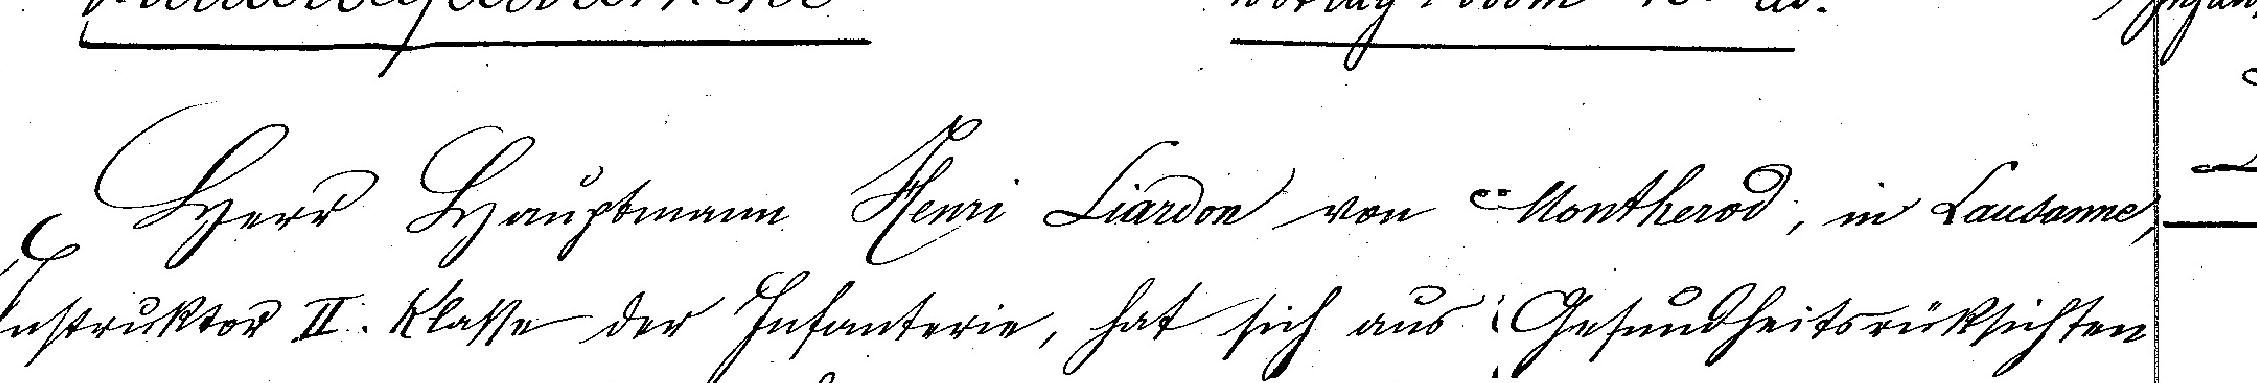 Herr Hauptmann Henri Liardon von Montherod, in Lausanne,
Instruktor II. Klasse der Infanterie, hat sich aus Gesundheitsrüksichten